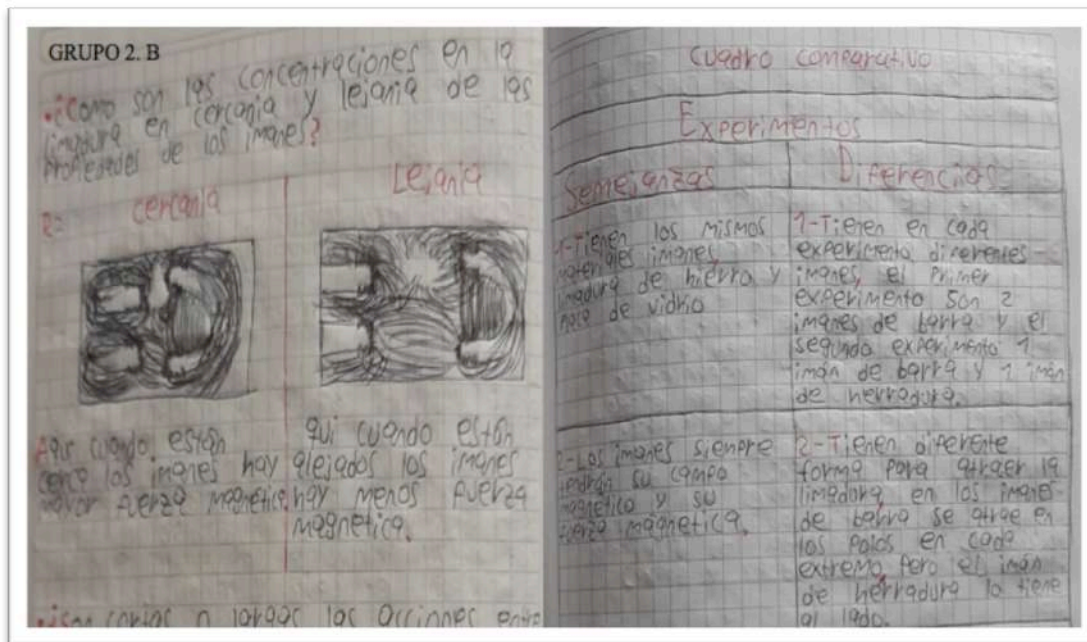 GRUPO 2. B
•¿Como son las concentraciones en la
limadura en cercania y lejania de las
propiedades de los imanes?
R= cercania
Lejania
Aqui cuando están
cerca los imanes hay
mayor fuerza magnética.
qui cuando están
alejados los imanes
hay menos fuerza
magnetica.
•¿Son cortas o largas las acciones entre
Cuadro comparativo
Experimentos
Semejanzas
Diferencias
1-Tienen los mismos
materiales imanes,
limadura de hierro y
de vidrio
1-Tienen en cada
experimento diferentes
imanes, el primer
experimento son 2
imanes de barra y el
segundo experimento 1
imán de barra y 1 imán
de herradura.
2-Los imanes siempre
tendrán su campo
magnetico y su
fuerza magnetica.
2-Tienen diferente
forma para atraer la
limadura, en los imanes
de barra se atrae en
los polos en cada
extremo, pero el imán
de herradura lo tiene
al lado.